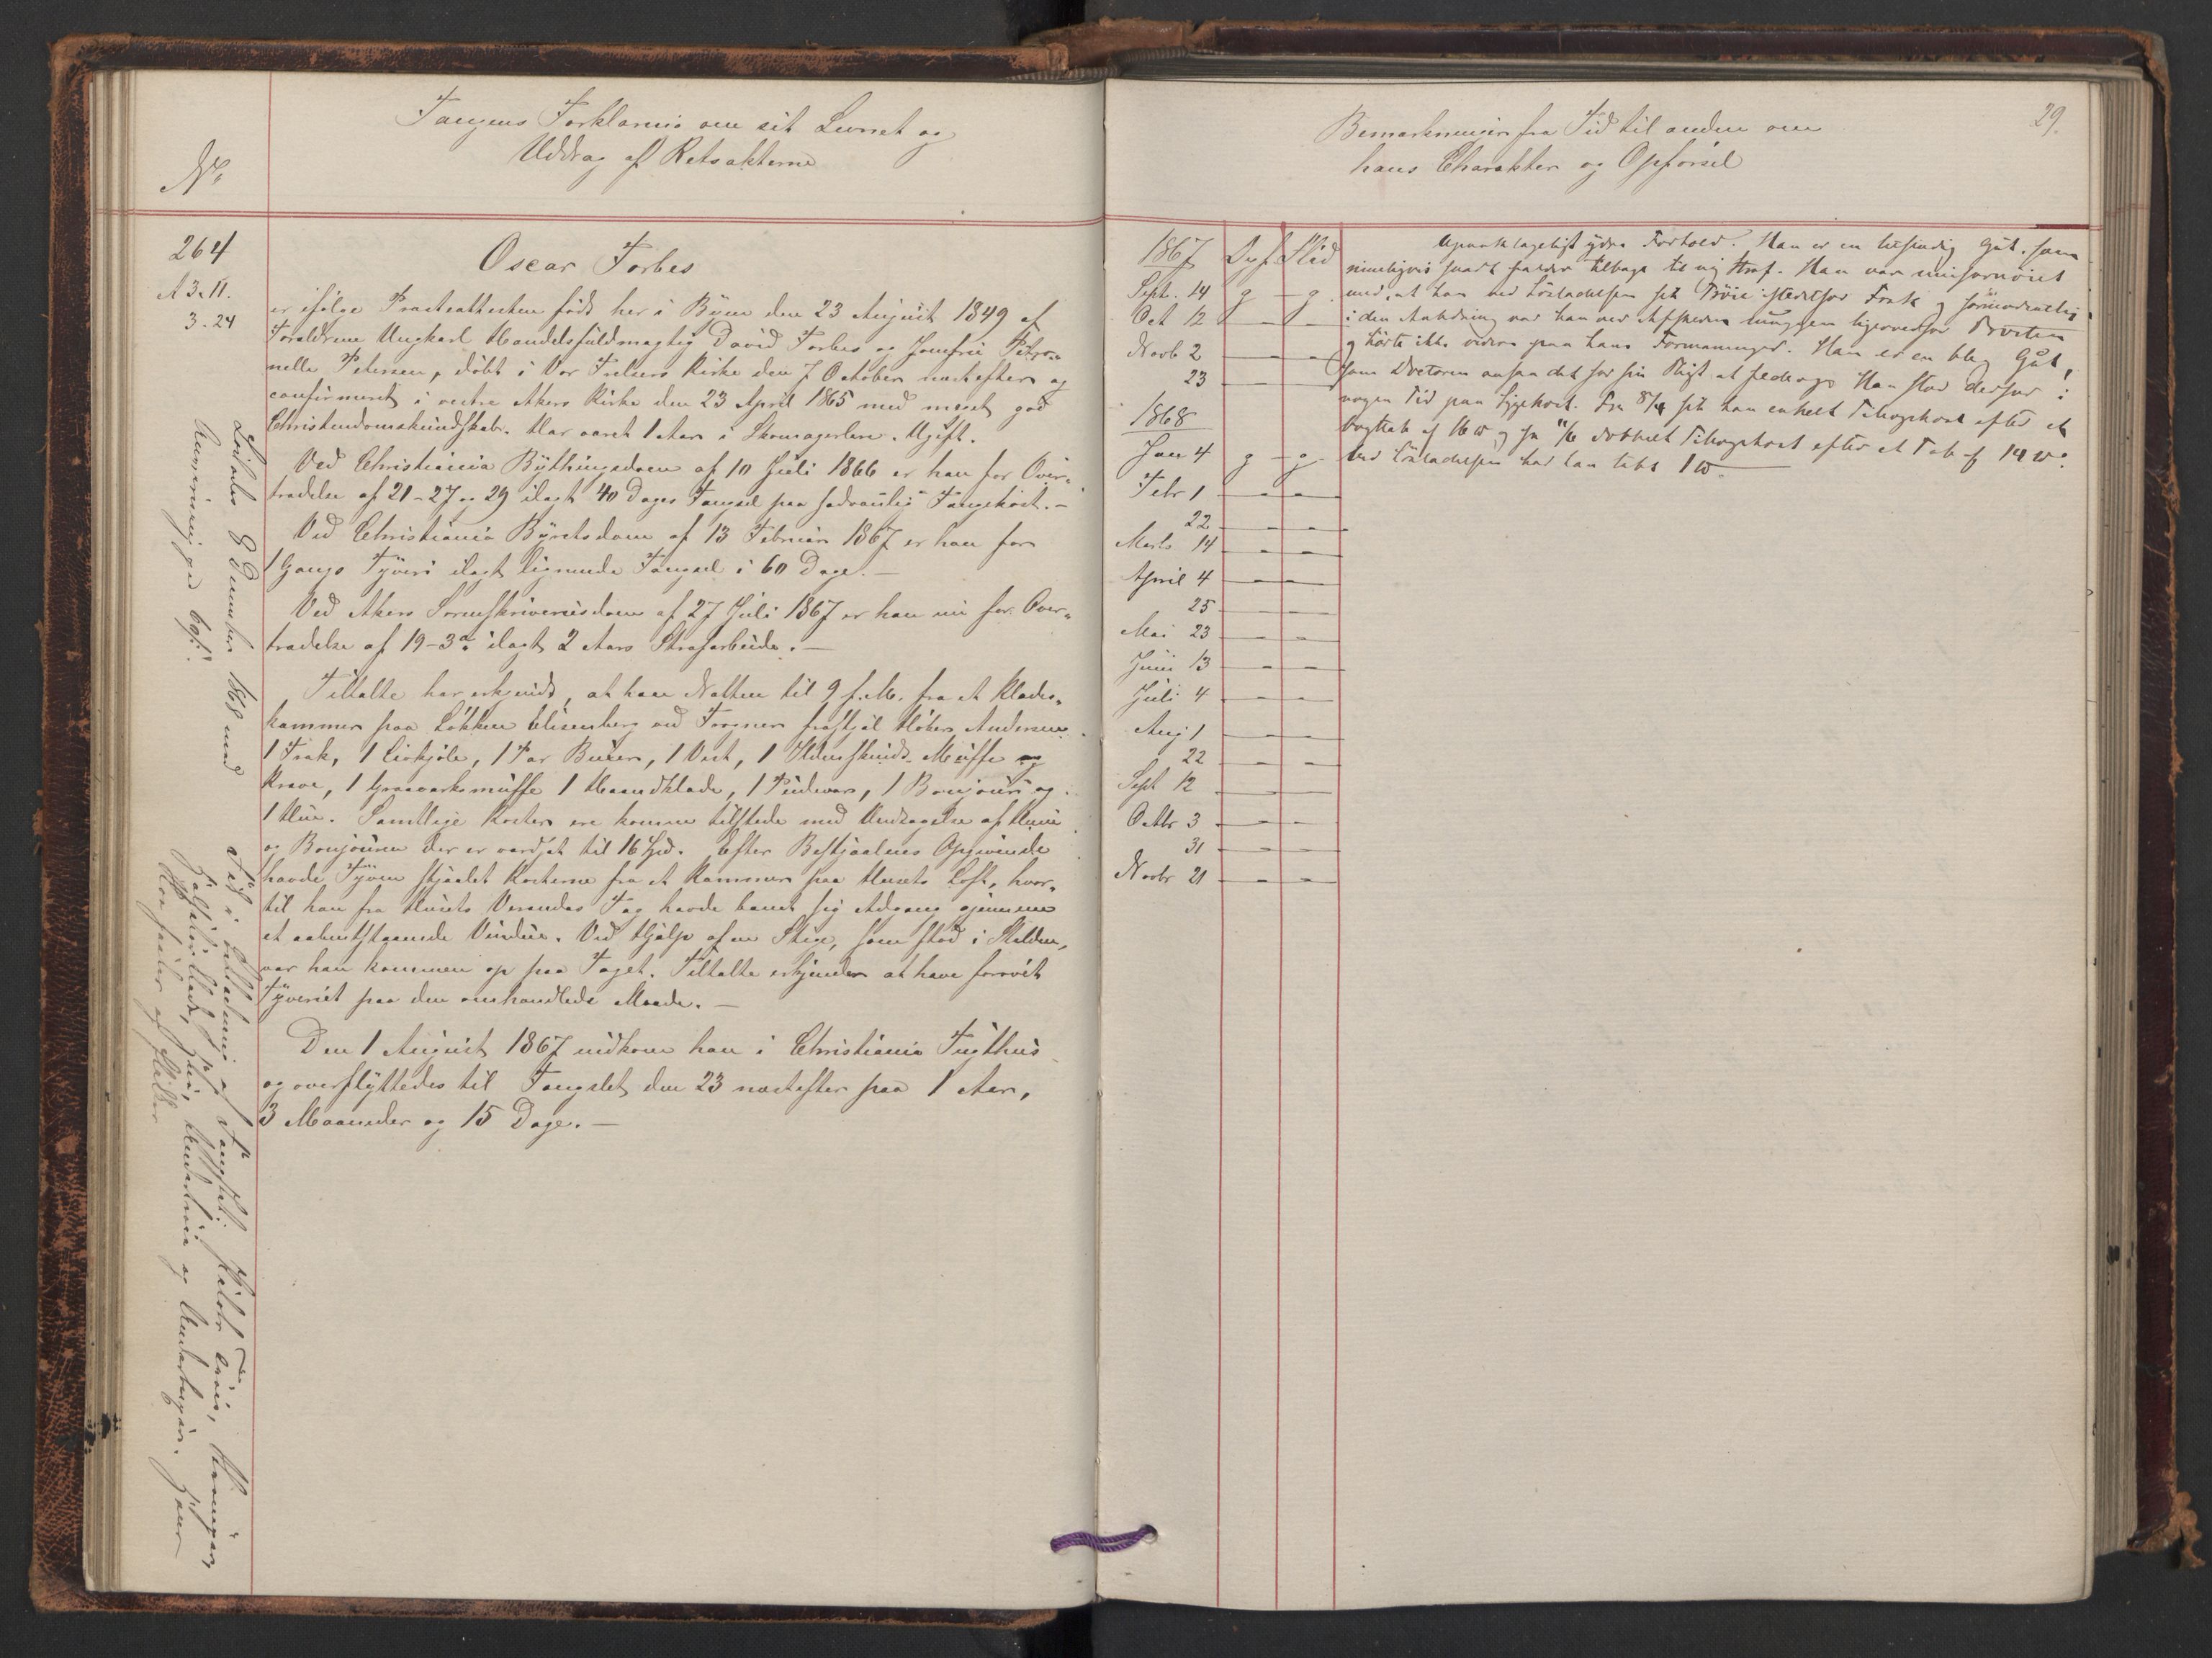 Fangens Forklaring om sit Levnet og
Uddrag af Retsakterne
No
264
A 3. 11.
3. 24
Oscar Forbes
er ifølge Præsteattesten født her i Byen den 23 August 1849 af
Forældrene Ungkarl Handelsfuldmægtig David Forbes og Jomfru Petro-
nelle Petersen, døbt i Vor Frelsers Kirke den 7 October næstefter og
confirmeret i vestre Akers Kirke den 23 April 1865 med meget god
Christendomskundskab. Har været 1 Aar i Skomagerlære. Ugift.
Ved Christiania Bythingsdom af 10 Juli 1866 er han for Over-
trædelse af 21-27 og 29 ilagt 40 Dages Fængsel paa sædvanlig Fangekost. -
Ved Christiania Byretsdom af 13 Februar 1867 er han for
1 Gangs Tyveri ilagt lignende Fængsel i 60 Dage. -
Ved Akers Sorenskriveriesdom af 27 Juli 1867 er han nu for Over-
trædelse af 19-3die ilagt 2 Aars Strafarbeide. -
Tiltalte har erkjendt, at han Natten til 9 f.M. fra et Klædes-
kammer paa Løkken Elisenberg ved Frogner frastjal Høker Andersen
1 Frak, 1 Livkjole, 1 Par Buxer, 1 Vest, 1 Ilderskinds Muffe og
Krave, 1 Graaværksmuffe 1 Haandklæde, 1 Pudevar, 1 Bonjour og
1 Hue. Samtlige Koster ere komne tilstede med Undtagelse af Huen
og Bonjouren der er værdsat til 16 Spd. Efter Bestjaalnes Opgivende
havde Tyven stjaalet Kosterne fra et Kammer paa Husets Loft, hvor-
til han fra Husets Verandas Tag havde banet sig Adgang gjennem
et aabentstaaende Vindue. Ved Hjælp af en Stige, som stod i Stalden,
var han kommen op paa Taget. Tiltalte erkjender at have forøvet
Tyveriet paa den omhandlede Maade. -
Den 1 August 1867 indkom han i Christiania Tugthus
og overflyttedes til Fængslet den 23 næstefter paa 1 Aar,
3 Maaneder og 15 Dage. -
Løslades 8 December 1868 med
Fik i Løsladning af Fængslet
29.
Bemærkninger fra Tid til anden om
hans Charakter og Opførsel
1867 Opf. Flid
Sept. 14 g - g
Oct 12 - -
Novb 2 - -
23 - -
1868
Jan 4 g - g
Febr 1 - -
22 - -
Marts 14 - -
April 4 - -
25 - -
Mai 23 - -
Juni 13 - -
Juli 4 - -
Aug 1 - -
22 - -
Sept 12 - -
Octbr 3 - -
31 - -
Novbr 21 - -
Upaaklageligt ydre Forhold. Han er en letsindig Gut, som
rimeligvis snart falder tilbage til ny Straf. Han var misfornøiet
med, at han ved Løsladelsen fik Trøie istedetfor Frak og
i den Anledning var han ved Afskeden ligeoverfor
og hørte ikke videre paa hans Formaninger. Han er en bleg Gut,
som Doctoren ansaa det for sin Pligt at pleie. Han stod derfor i
nogen Tid paa Sygekost. Fra 8/4 fik han enkelt Tillægskost efter et
Vægttab af 16 ℔ og fra 11/6 dobbelt Tillægskost efter et Tab af 14 ℔.
Ved Løsladelsen har han tabt 1 ℔.